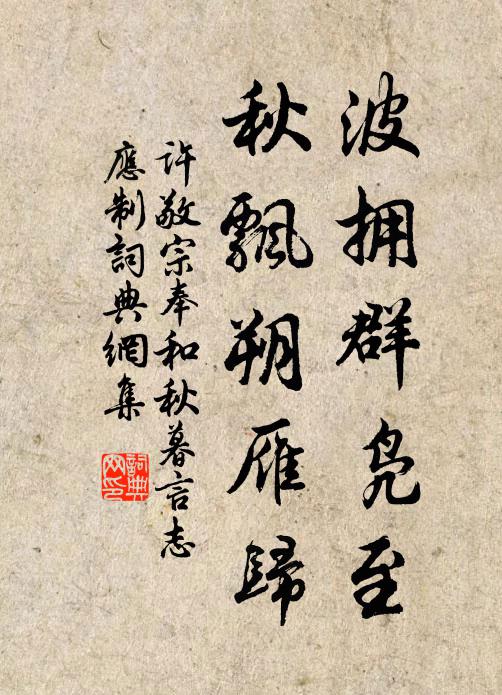 波拥群凫至
秋飄朔雁歸
许敬宗奉和秋暮言志
應制詞典網集
詞典
网印